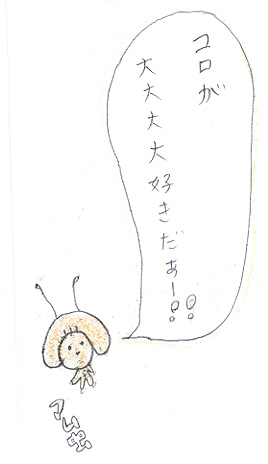 コロが
大大大大好きだぁー!!